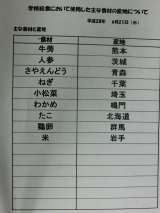 学校給食において使用した主な食材の産地について
平成28年 6月21日（火）
主な食材の産地
食材 産地
牛蒡 熊本
人参 茨城
さやえんどう 青森
ねぎ 千葉
小松菜 埼玉
わかめ 鳴門
たこ 北海道
鶏卵 群馬
米 岩手